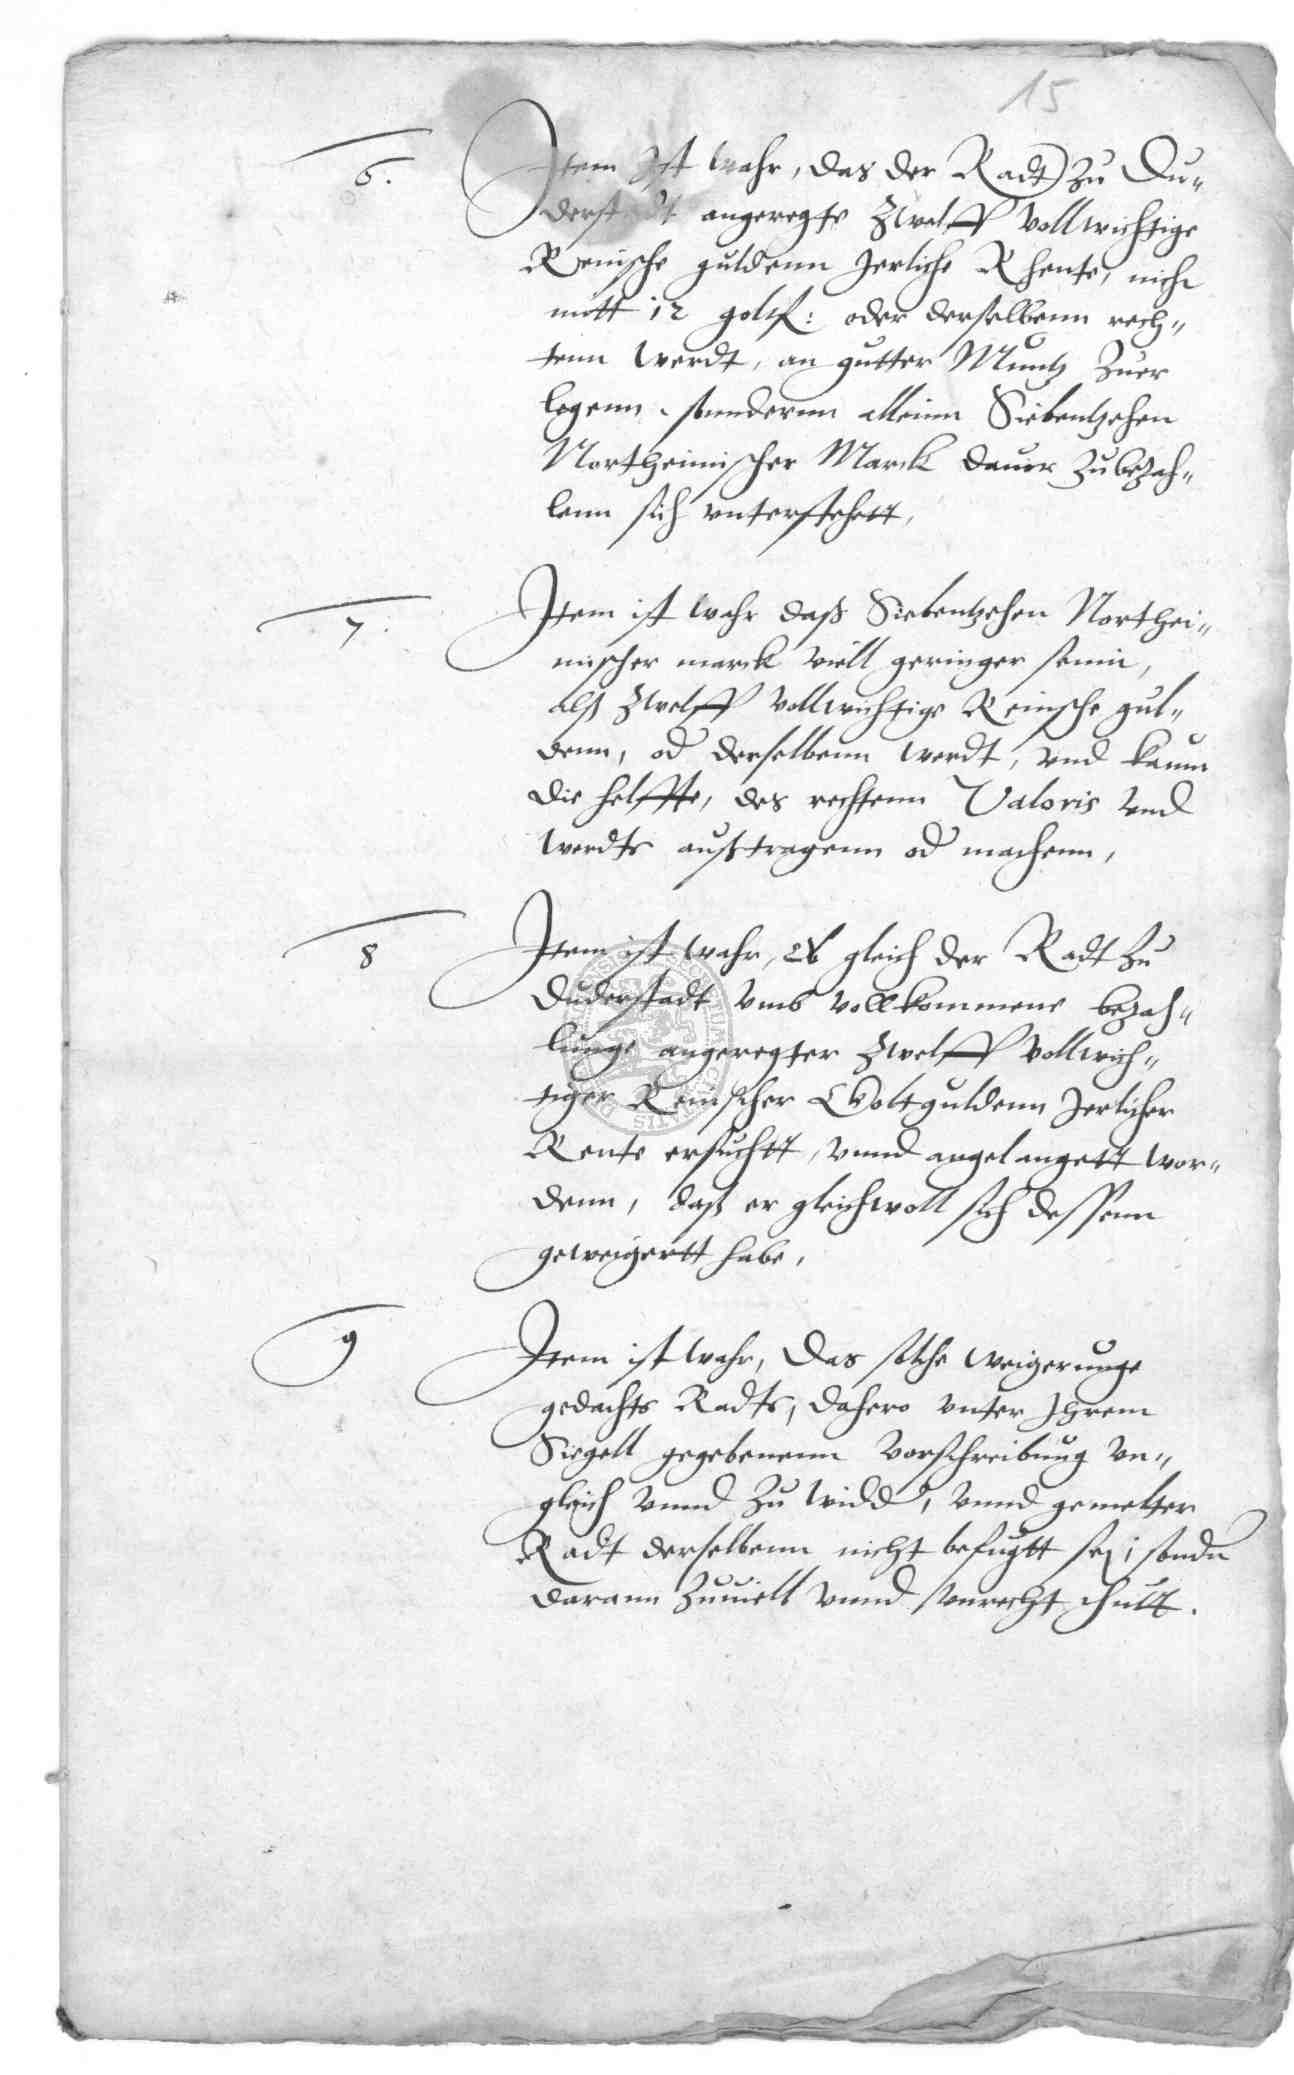 15
6.
Item Ist wahr, das der Radt zu Du„
derstadt angeregte Zwelff vollwichtige
Reinische guldenn Jerliche Rhente, nicht
mitt 12 goltfl: oder derselbenn rech„
tenn werdt, an gutter Muntz Zuer
legenn, sonndernn alleinn Siebentzehen
Northeimischer Marck dauor zubezah„
lenn sich vnterstehett,
7.
Item ist wahr daß Siebentzehen Northei„
mischer marck viell geringer seinn,
alß Zwelff vollwichtige Reinische gul„
denn, od derselbenn werdt, vnd kaum
die helffte, des rechtenn Valoris vnd
werdts außtragenn od machenn,
8
Item ist wahr, Ob gleich der Radt zu
Duderstadt vmb vollkommene bezah„
lunge angeregter Zwelff vollwich„
tiger Reinischer Goltguldenn Jerlicher
Rente ersuchtt, vnnd angelangett wor„
denn, daß er gleichwoll sich dessenn
geweigertt habe,
9
Item ist wahr, Das solche weigerunge
gedachts Radts, dahero vnter Ihrem
Siegell gegebenenn vorschreibung vn„
gleich vnnd zu widd, vnnd gemelter
Radt derselbenn nicht befugtt sej, sondn
darann Zuuiell vnnd vnrecht thutt.